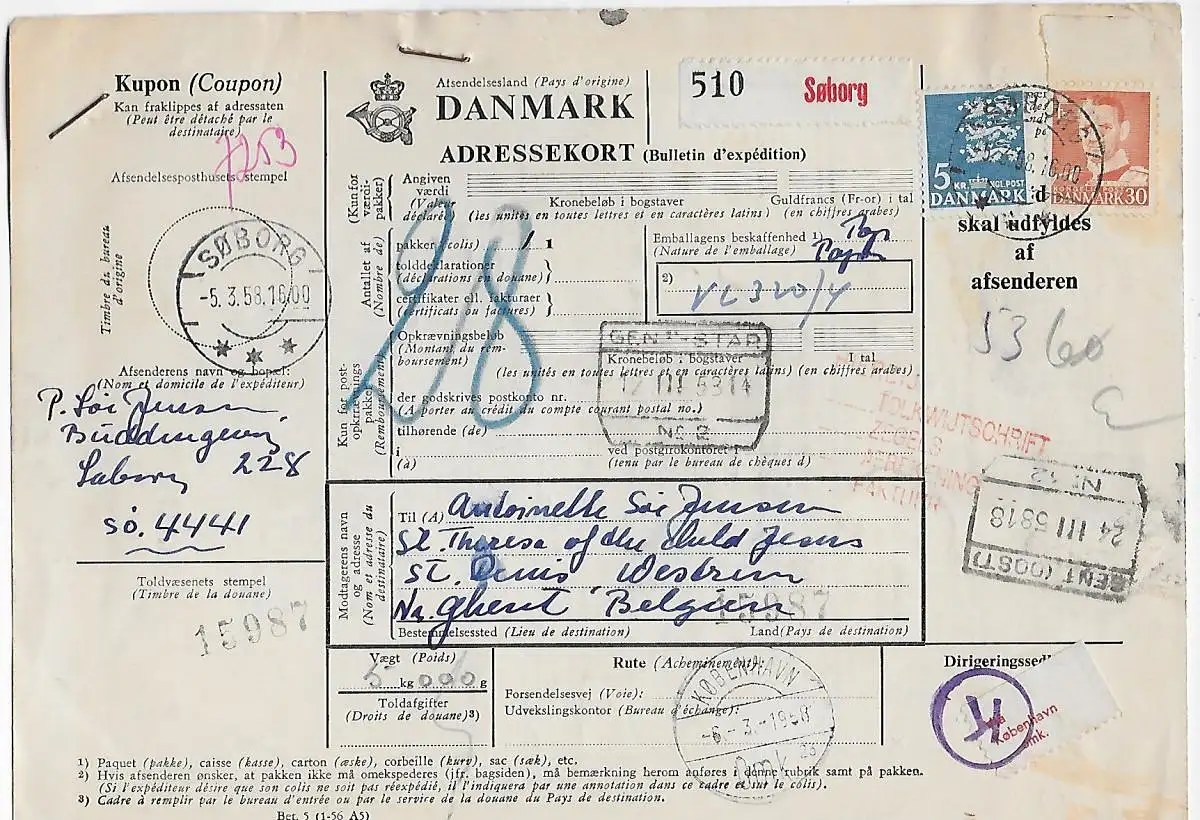 Kupon (Coupon)
Kan fraklippes af adressaten
(Peut être détaché par le
destinataire)
7253
Afsendelsesposthusets stempel
Timbre du bureau
d'origine
SØBORG
-5.3.58.16.00
Afsenderens navn og bopæl:
(Nom et domicile de l'expéditeur)
228
SØ. 4441
Toldvæsenets stempel
(Timbre de la douane)
15987
Afsendelsesland (Pays d'origine)
DANMARK
510 Søborg
ADRESSEKORT (Bulletin d'expédition)
(Kun for
værdi-
pakker)
Angiven
værdi
(Valeur
déclarée)
Kronebeløb i bogstaver
(les unités en toutes lettres et en caractères latins)
Guldfrancs (Fr-or) i tal
(en chiffres arabes)
5 KR.
DANMARK
DANMARK 30
skal udfyldes
af
afsenderen
Antallet af
(Nombre de)
pakker (colis) 1
tolddeklarationer
(déclarations en douane)
certifikater ell. fakturaer
(certificats ou factures)
Emballagens beskaffenhed 1)
(Nature de l'emballage)
2)
28
Kun for post-
opkrævnings
pakker
(Remboursement)
Opkrævningsbeløb
(Montant du rem-
boursement)
Kronebeløb i bogstaver
(les unités en toutes lettres et en caractères latins)
I tal
(en chiffres arabes)
der godskrives postkonto nr.
(A porter au crédit du compte courant postal no.)
tilhørende (de)
i
(à)
ved postgirokontoret i
(tenu par le bureau de chèques d)
GENT-STAR
Nº 2
53 60
ZEGELS
Nº 12
24 III 5818
GENT (OOST)
Modtagerens navn
og adresse
(Nom et adresse du
destinataire)
Til (A) Antoinette Søe Jensen
St. Theresa of the Child Jesus
St. Denis Westrem
Nr. Ghent Belgium
15987
Bestemmelsessted (Lieu de destination)
Land (Pays de destination)
Vægt (Poids)
5 kg 090 g
Toldafgifter
(Droits de douane)3)
Rute (Acheminement):
Forsendelsesvej (Voie):
Udvekslingskontor (Bureau d'échange):
KØBENHAVN
-6.-3.-1958
København
Omk.
1) Paquet (pakke), caisse (kasse), carton (æske), corbeille (kurv), sac (sæk), etc.
2) Hvis afsenderen ønsker, at pakken ikke må omekspederes (jfr. bagsiden), må bemærkning herom anføres i denne rubrik samt på pakken.
(Si l'expéditeur désire que son colis ne soit pas réexpédié, il l'indiquera par une annotation dans ce cadre et sur le colis).
3) Cadre à remplir par le bureau d'entrée ou par le service de la douane du Pays de destination.
Bet. 5 (1-56 A5)